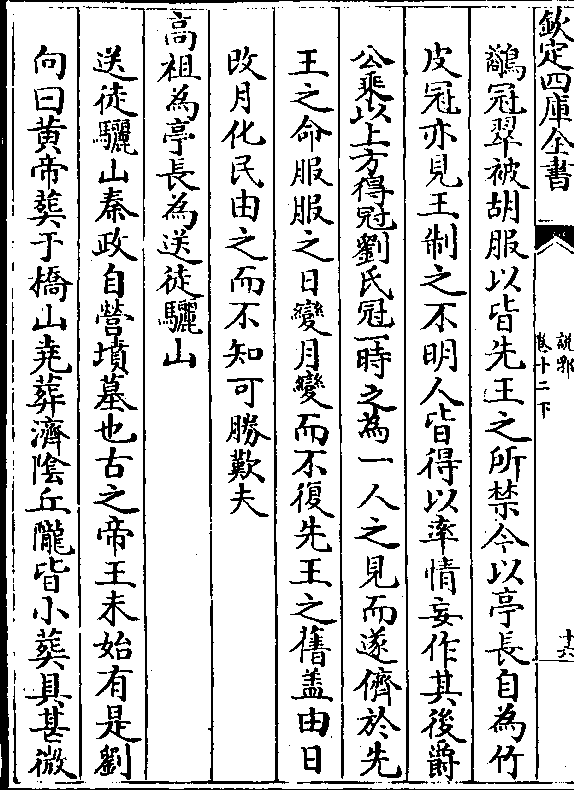 欽定四庫全書
說郛
卷十二下
十六
鷸冠翠被胡服以皆先王之所禁今以亭長自為竹
皮冠亦見王制之不明人皆得以率情妄作其後爵
公乗以上方得冠劉氏冠一時之為一人之見而遂儕於先
王之命服服之日變月變而不復先王之舊盖由日
改月化民由之而不知可勝歎夫
高祖為亭長為送徒驪山
送徒驪山秦政自營墳墓也古之帝王未始有是劉
向曰黄帝葬于橋山堯葬濟隂丘隴皆小葬具甚微